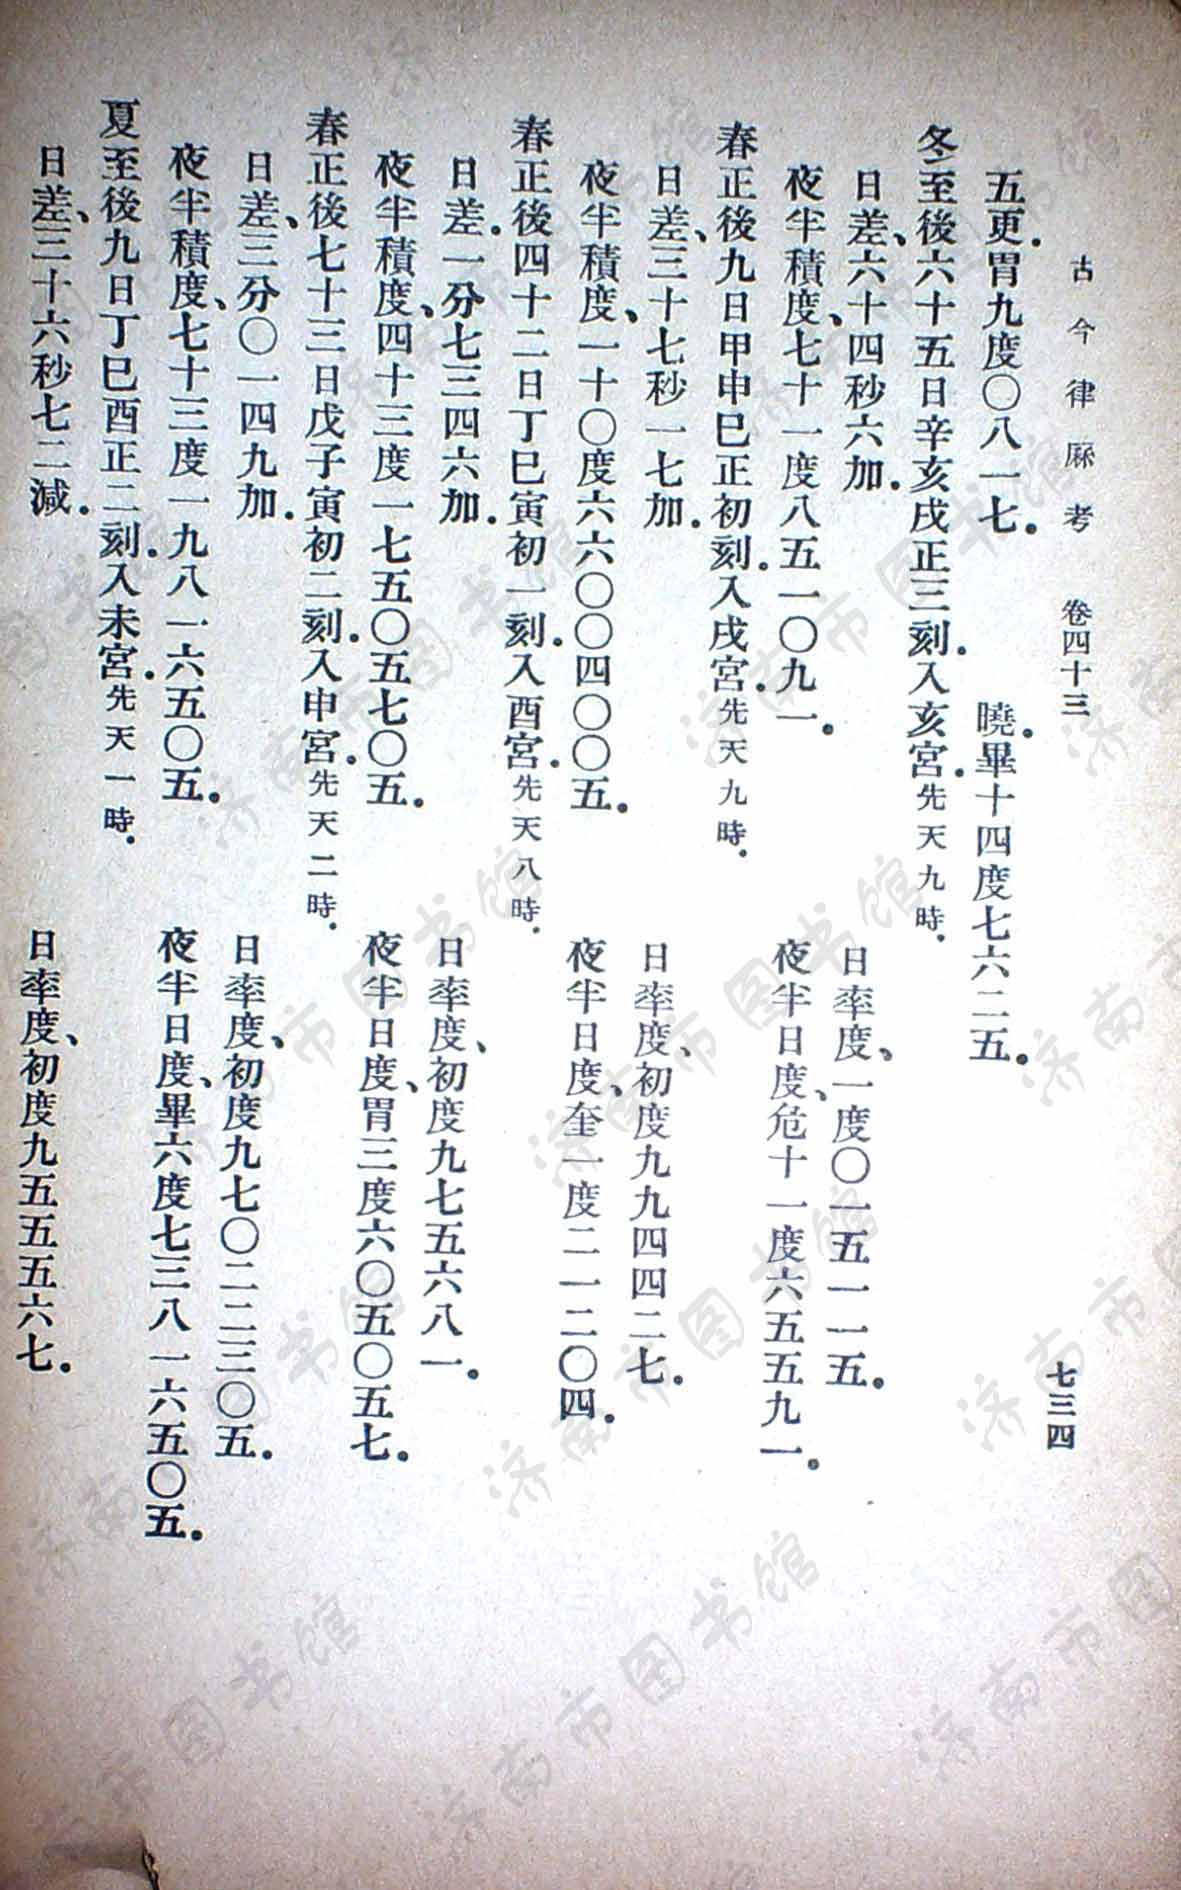 古今律厤考　卷四十三　七三四
五更．胃九度〇八一七．　曉．畢十四度七六二五．
冬至後六十五日辛亥戌正三刻．入亥宮．先天九時．
日差、六十四秒六加．　日率度、一度〇一五一一五．
夜半積度、七十一度八五一〇九一．　夜半日度、危十一度六五五九一．
春正後九日甲申巳正初刻．入戌宮．先天九時．
日差、三十七秒一七加．　日率度、初度九九四四二七．
夜半積度、一十〇度六六〇〇四〇〇五．　夜半日度、奎一度二一二〇四．
春正後四十二日丁巳寅初一刻．入酉宮．先天八時．
日差．一分七三四六加．　日率度、初度九七五六八一．
夜半積度、四十三度一七五〇五七〇五．　夜半日度、胃三度六〇五〇五七．
春正後七十三日戊子寅初二刻．入申宮．先天二時．
日差、三分〇一四九加．　日率度、初度九七〇二二三〇五．
夜半積度、七十三度一九八一六五〇五．　夜半日度、畢六度七三八一六五〇五．
夏至後九日丁巳酉正二刻．入未宮．先天一時．
日差、三十六秒七二減．　日率度、初度九五五五六七．
济南市图书馆